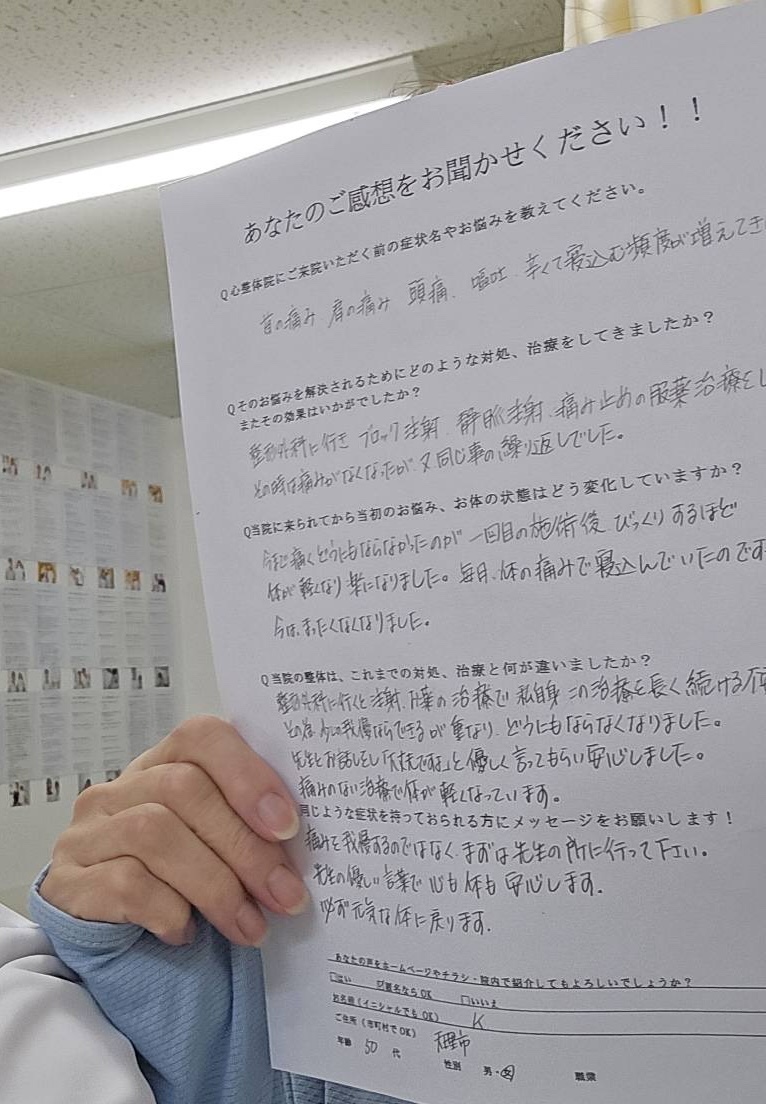 あなたのご感想をお聞かせください！！
Q心整体院にご来院いただく前の症状名やお悩みを教えてください。
首の痛み 肩の痛み 頭痛、嘔吐、辛くて寝込む頻度が増えてき
Qそのお悩みを解決されるためにどのような対処、治療をしてきましたか？
またその効果はいかがでしたか？
整形外科に行き ブロック注射、静脈注射、痛み止めの服薬治療をし
その時は痛みがなくなったが、又同じ事の繰り返しでした。
Q当院に来られてから当初のお悩み、お体の状態はどう変化していますか？
今まで痛くどうにもならなかったのが 一回目の施術後、びっくりするほど
体が軽くなり楽になりました。毎日、体の痛みで寝込んでいたのです
今は、まったくなくなりました。
Q当院の整体は、これまでの対処、治療と何が違いましたか？
整形外科に行くと注射、お薬の治療で 私自身 この治療を長く続ける
その為 少しの我慢ならできるが重なり、どうにもならなくなりました。
先生とお話しをし「大丈夫ですよ」と優しく言ってもらい安心しました。
痛みのない治療で体が軽くなっています。
同じような症状を持っておられる方にメッセージをお願いします！
痛みを我慢するのではなく、まずは先生の所に行って下さい。
先生の優しい言葉で心も体も安心します。
必ず元気な体に戻ります。
あなたの声をホームページやチラシ・院内で紹介してもよろしいでしょうか？
□はい ☑匿名ならOK □いいえ
お名前（イニシャルでもOK） K
ご住所（市町村でOK） 天理市
年齢 50 代 性別 男・女 職業